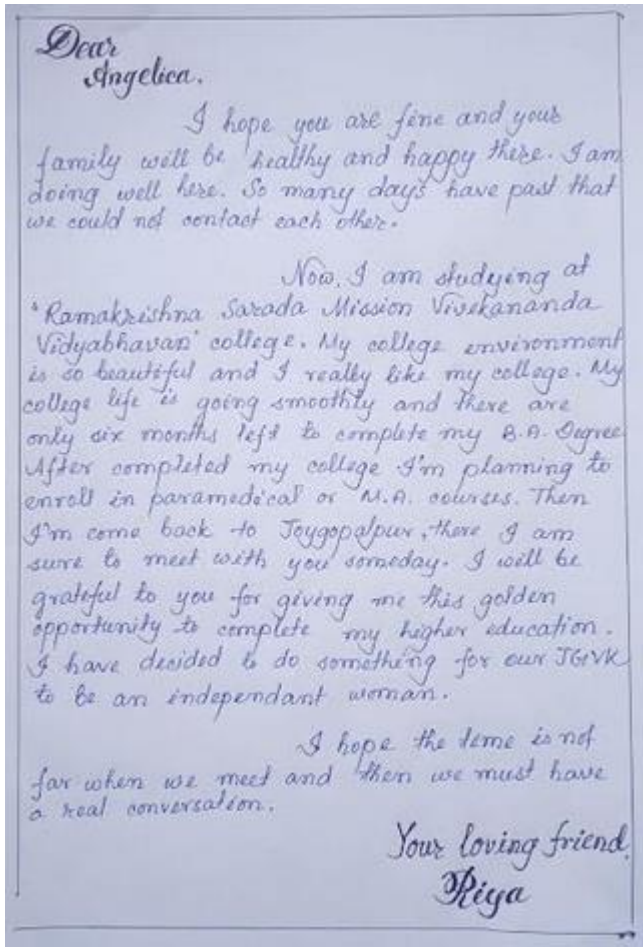 Dear
Angelica.
I hope you are fine and your
family will be healthy and happy there. I am
doing well here. So many days have past that
we could not contact each other.
Now, I am studying at
'Ramakrishna Sarada Mission Vivekananda
Vidyabhavan' college. My college environment
is so beautiful and I really like my college. My
college life is going smoothly and there are
only six months left to complete my B.A. Degree
After completed my college I'm planning to
enroll in paramedical or M.A. courses. Then
I'm come back to Joygopalpur, there I am
sure to meet with you someday. I will be
grateful to you for giving me this golden
opportunity to complete my higher education.
I have decided to do something for our JGVK
to be an independant woman.
I hope the teme is not
far when we meet and then we must have
a real conversation.
Your loving friend,
Riya